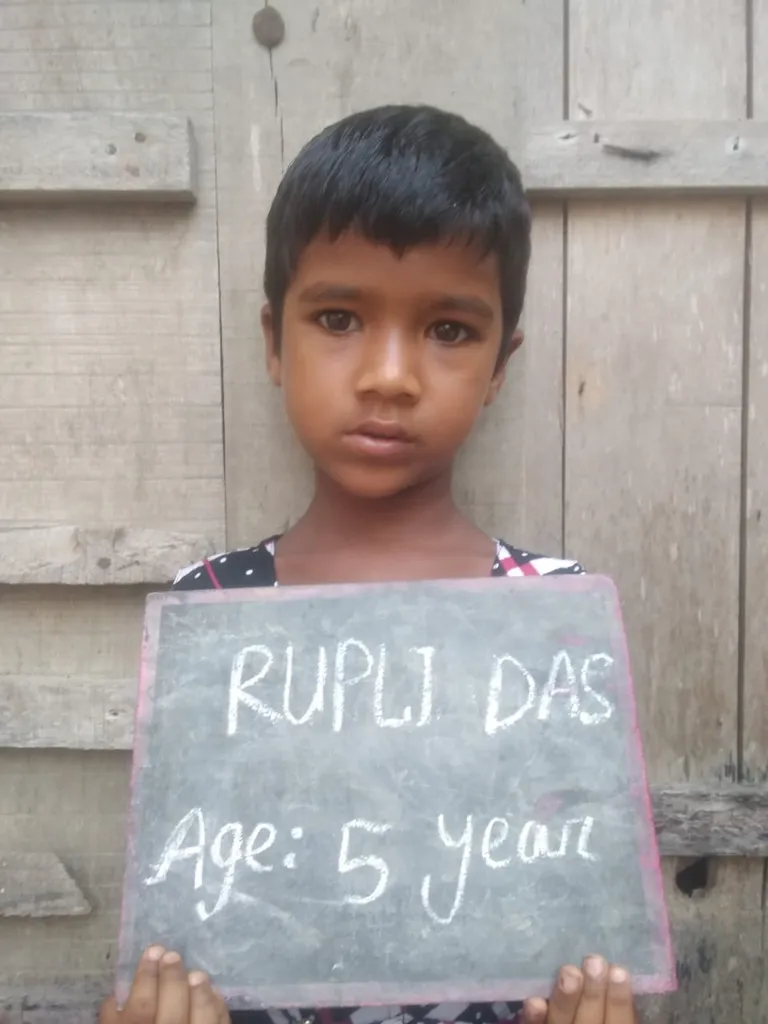 RUPLI DAS
Age: 5 year